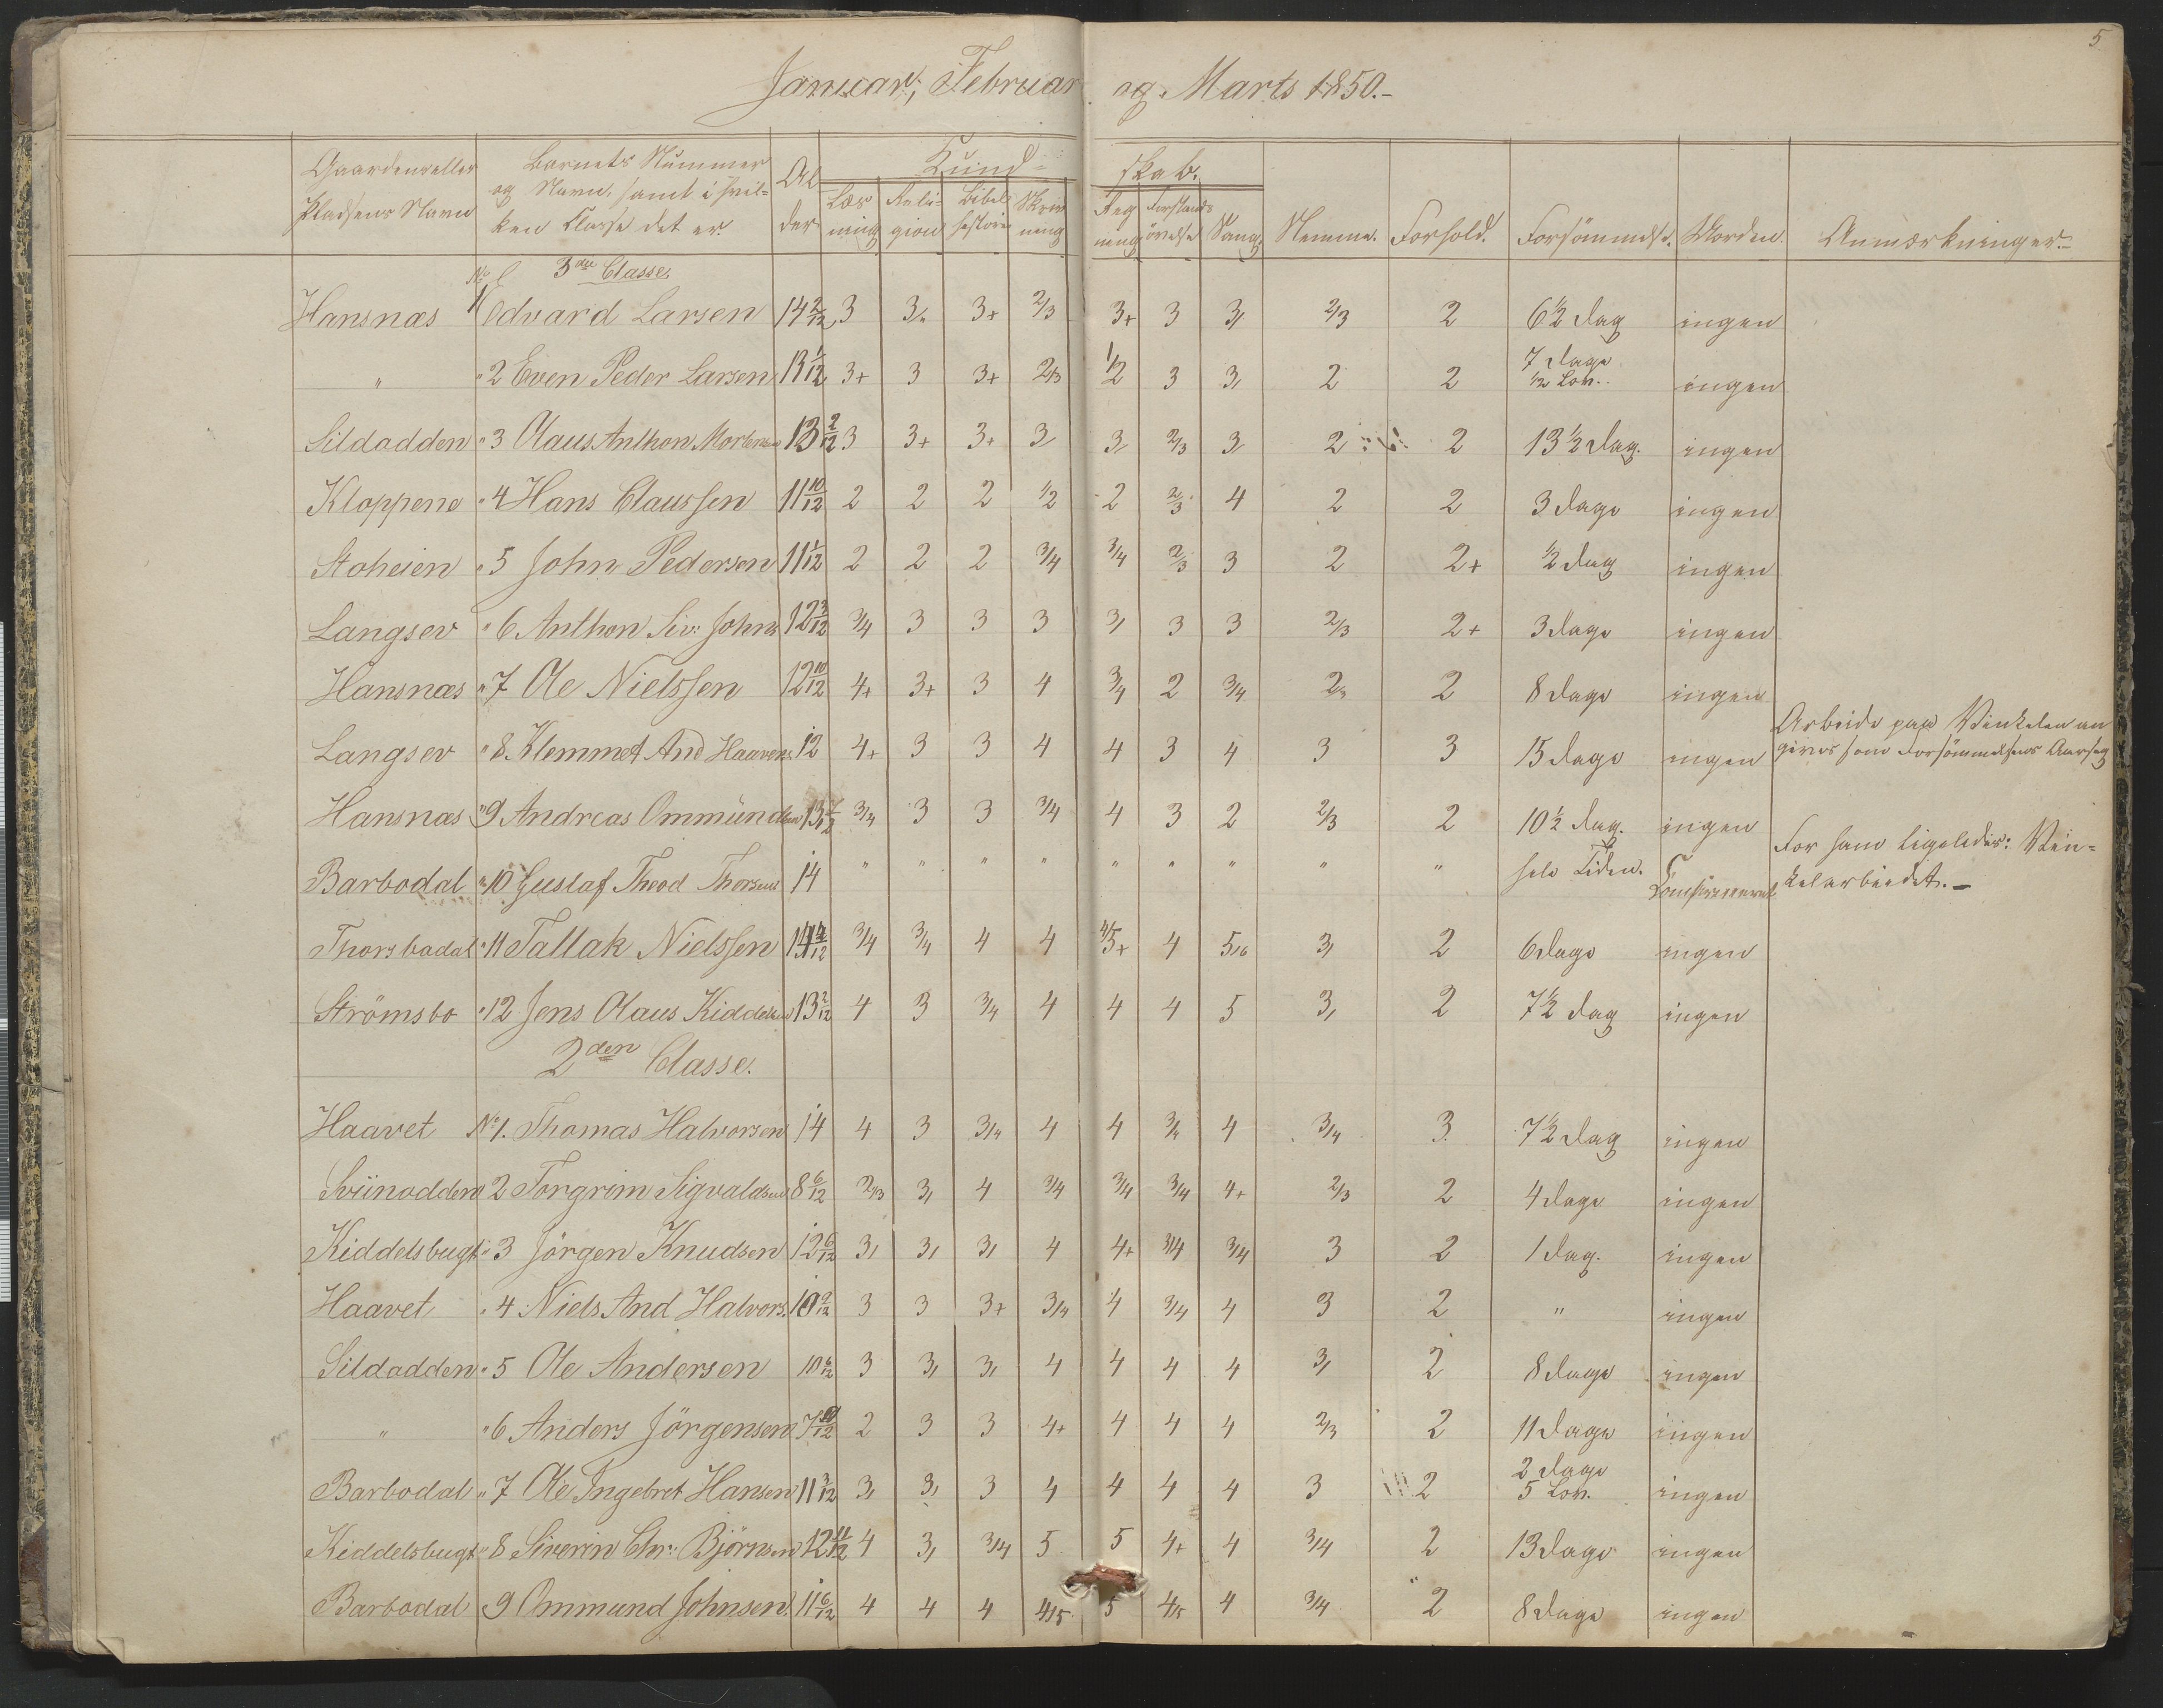 5
Januar, Februar og Marts 1850.-
Gaardens eller Pladsens Navn | Barnets Nummer og Navn, samt i hvilken Classe det er. | Alder | Kundskab. | Nemme. | Forhold. | Forsömmelse. | Anmærkninger.
Læsning | Religion | Bibelhistorie | Skrivning | Regning | Forstandsövelse | Sang
No 3die Classe
Hansnæs 1 Edvard Larsen 14 2/12 3 3, 3+ 2/3 3+ 3 3, 2/3 2 6½ Dag ingen
" " 2 Even Peder Larsen 13 1/12 3+ 3 3+ 2/3 1/2 3 3, 2 2 7 Dage ingen
Sildodden " 3 Olaus Anthon Mortensen 13 2/12 3 3+ 3+ 3, 3, 2/3 3, 2 2 13½ Dag. ingen
Kloppene " 4 Hans Claussen 11 10/12 2 2 2 1/2 2 2/3 4 2 2 3 Dage ingen
Stoheien " 5 John Pedersen 11 1/12 2 2 2 3/4 3/4 2/3 3 2 2+ ½ Dag ingen
Langsev " 6 Anthon Siv: Johns 12 3/12 3/4 3 3 3 3, 3 3 2/3 2+ 3 Dage ingen
Hansnæs " 7 Ole Nielssen 12 10/12 4+ 3+ 3 4 3/4 2 3/4 2/3 2 8 Dage ingen
Langsev " 8 Klemmet And Haavens 12 4+ 3 3 4 4 3 4 3 3 15 Dage ingen Arbeide paa Vinkelen angives som Forsömmelsens Aarsag
Hansnæs " 9 Andreas Ommundsen 13 3/4 3 3 3/4 4 3 2 2/3 2 10½ Dag. ingen
Barbodal " 10 Gustaf Theod Thorsens 14 " " " " " " " " " hele Tiden. For ham ligeledes: Vinkelarbeidet.-
Thorsbodal " 11 Tallak Nielssen 14 3/4 3/4 4 4 4/5+ 4 5/6 3, 2 6 Dage ingen
Strömsbo " 12 Jens Olaus Kiddelsen 13 2/12 4 3 3/4 4 4 4 5 3, 2 7½ Dag ingen
2den Classe.
Haavet No 1. Thomas Halvorsen 14 4 3 3/4 4 4 3/4 4 3/4 3 7½ Dag ingen
Sviinodden 2 Torgrim Sigvaldsen 8 6/12 2/3 3, 4 3/4 3/4 3/4 4+ 2/3 2 4 Dage ingen
Kiddelsbugt " 3 Jörgen Knudsen 12 6/12 3, 3, 3, 4 4+ 3/4 3/4 3 2 1 Dag. ingen
Haavet " 4 Niels And Halvors. 10 9/12 3 3 3+ 3/4 4 3/4 4 3 2 " ingen
Sildodden " 5 Ole Andersen 10 6/12 3 3, 3, 4 4 4 4 3, 2 8 Dage ingen
" " 6 Anders Jörgensen 7 10/12 2 3 3 4+ 4 4 4 2/3 2 11 Dage ingen
Barbodal " 7 Ole Ingebret Hansen 11 3/12 3, 3, 3 4 4 4 4 3 2 2 Dage ingen
Kiddelsbugt " 8 Siverin Chr: Björnsen 12 11/12 4 3, 3/4 5 5 4+ 4 3/4 2 13 Dage ingen
Barbodal 9 Ommund Johnsen. 11 6/12 4 4 4 4/5 5 4/5 4 3/4 2 8 Dage ingen